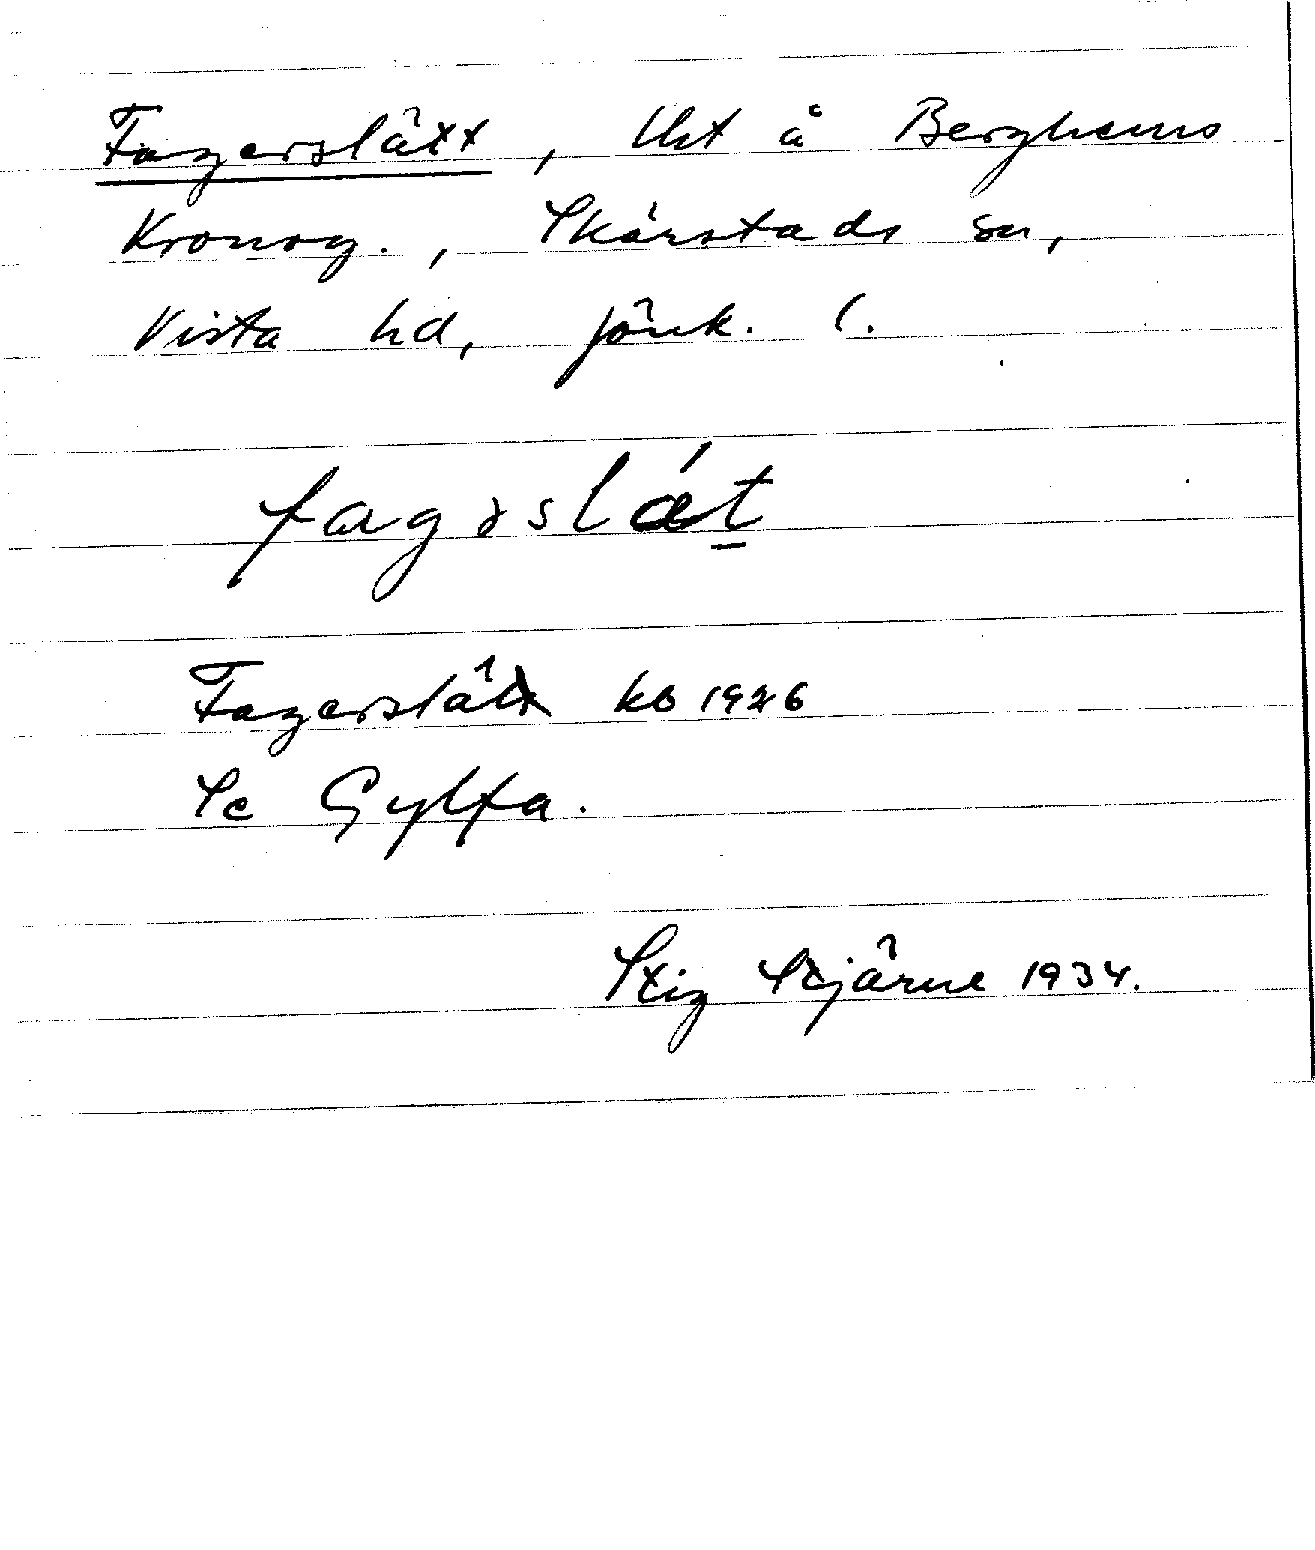 Fagerslätt, Lht å Berghems
Kronog., Skärstads sn,
Vista hd, Jönk. l.
fagərslǽt̠
Fagerslätt kb 1926
Se Gylfa.
Stig Stjärne 1934.